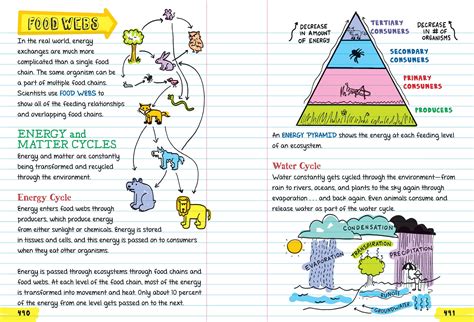 FOOD WEBS
In the real world, energy
exchanges are much more
complicated than a single food
chain. The same organism can be
a part of multiple food chains.
Scientists use FOOD WEBS to
show all of the feeding relationships
and overlapping food chains.
ENERGY and
MATTER CYCLES
Energy and matter are constantly
being transformed and recycled
through the environment.
Energy Cycle
Energy enters food webs through
producers, which produce energy
from either sunlight or chemicals. Energy is stored
in tissues and cells, and this energy is passed on to consumers
when they eat other organisms.
Energy is passed through ecosystems through food chains and
food webs. At each level of the food chain, most of the energy is
transformed into movement and heat. Only about 10 percent
of the energy from one level gets passed on to the next.
490
DECREASE
IN AMOUNT
OF ENERGY
TERTIARY
CONSUMERS
DECREASE
IN # OF
ORGANISMS
SECONDARY
CONSUMERS
PRIMARY
CONSUMERS
PRODUCERS
An ENERGY PYRAMID shows the energy at each feeding level
of an ecosystem.
Water Cycle
Water constantly gets cycled through the environment—from
rain to rivers, oceans, and plants to the sky again through
evaporation . . . and back again. Even animals consume and
release water as part of the water cycle.
CONDENSATION
EVAPORATION
TRANSPIRATION
PRECIPITATION
RUNOFF
GROUNDWATER
491